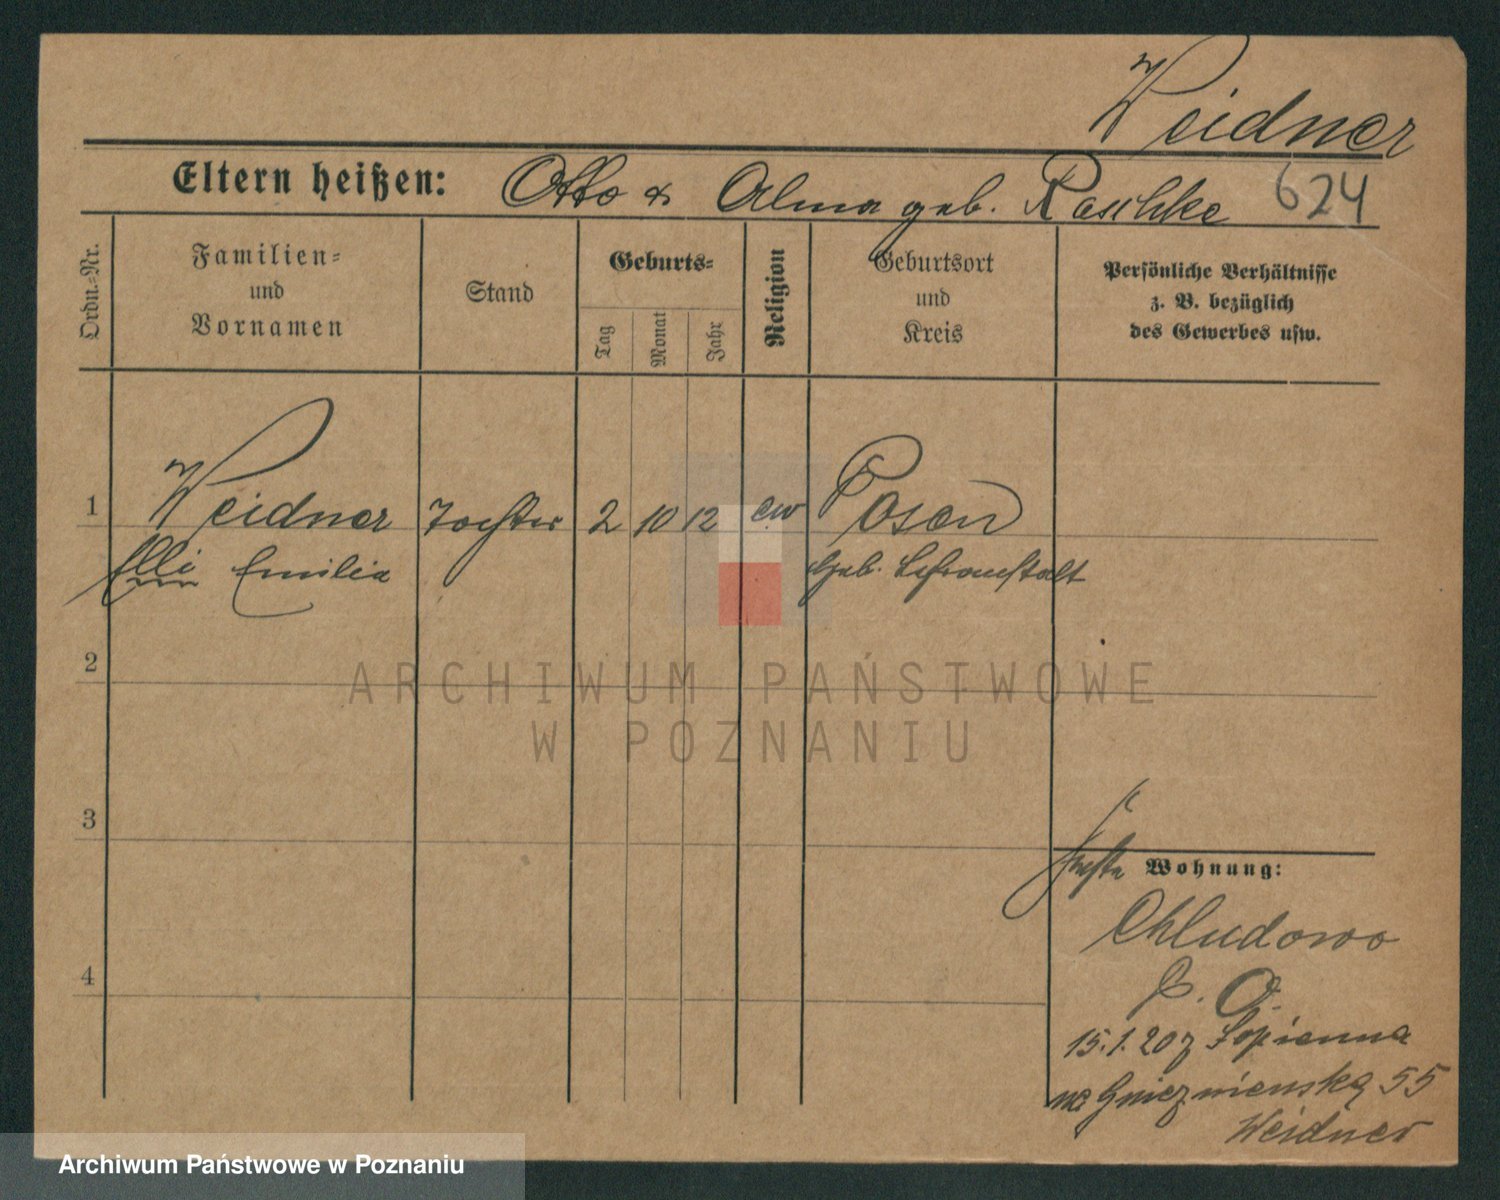 Weidner
Eltern heißen: Otto & Alma geb. Raschke 624
Ordn.-Nr.
Familien-
und
Vornamen
Stand
Geburts-
Tag
Monat
Jahr
Religion
Geburtsort
und
Kreis
Persönliche Verhältnisse
z. B. bezüglich
des Gewerbes usw.
1 Weidner Tochter 2 10 12 ev Posen
Elli Emilie Geb.
2
3
4
Wohnung:
Chludowo
P. O.
15.1.20 z Łopienna
na Gnieznienską 55
Weidner
ARCHIWUM PAŃSTWOWE
W POZNANIU
Archiwum Państwowe w Poznaniu